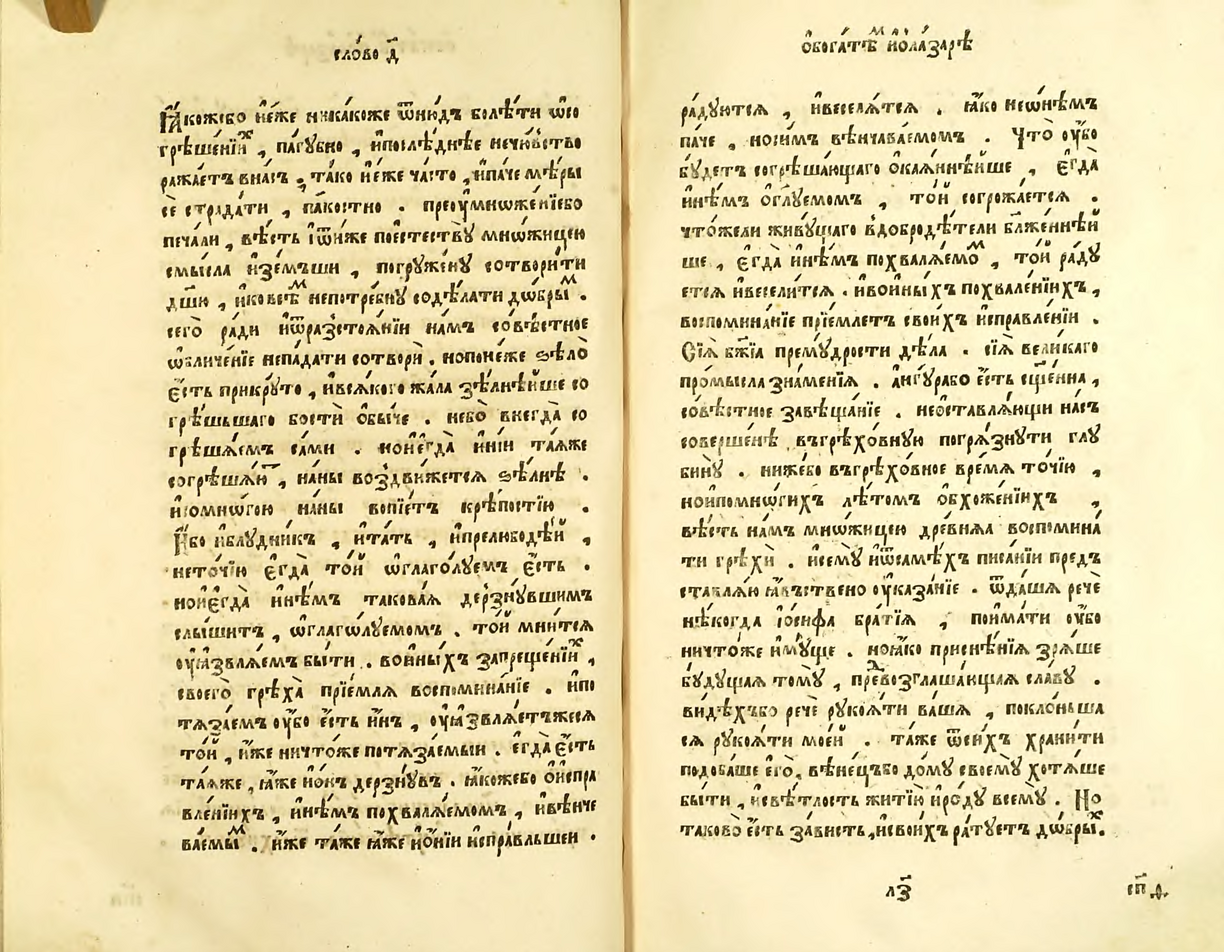 сло́во д҃
Ꙗ҆́кожебо є҆́же никакоже ѿню́дъ болѣ́ти ѡ҆со
грѣше́нїиⷯ , па́губно , и҆послѣ́днѣе нечю́вство
ража́етъ внасъ , та́ко и҆є́же ча́сто , и҆па́че мѣ́ры
сѐ страда́ти , па́костно . преꙋ҆мнѡже́нїебо
печа́ли , вѣ́сть і҆ѿи́же поестествꙋ̀ мнѡ́жицею
смы́сла и҆зе́мъши , погрꙋже́нꙋ сотвори́ти
дш҃ꙋ , и҆ковсѣⷨ непотре́бнꙋ содѣ́лати дѡ́брыⷨ .
сегѡ̀ ра́ди и҆ѿразстоѧ́нїи на́мъ со́вѣстное
ѡ҆бличе́нїе непа́дати сотворѝ . нопоне́же ѕѣлѡ̀
є҆́сть прикрꙋ́то , и҆всѧ́кого жа́ла зѣлнѣ́йше со
грѣ́шьшаго бостѝ ѻ҆бы́че . не́бо внегда̀ со
грѣша́емъ са́ми . нои҆є҆гда̀ и҆ні́и та́ѧже
согрѣша́ю̑ , на́ны воздви́жется ѕѣ́лнѣ .
и҆сомно́гою на́ны вопїе́тъ крѣ́постїю .
И҆́бо и҆блꙋдни́къ , и҆та́ть , и҆прелюбодѣ́й ,
неточі́ю є҆гда̀ то́й ѡ҆глаго́лꙋемъ є҆́сть .
нои҆є҆гда̀ и҆нѣ́мъ такова́ѧ дерзнꙋ́вшимъ
слы́шитъ , ѡ҆глагѡ́лꙋемомъ . то́й мни́тсѧ
оу҆ꙗзвлѧ́емъ бы́ти . вои҆ны́хъ запреще́нїиⷯ ,
своегѡ̀ грѣха̀ прїе́млѧ воспомина́нїе . и҆по
тѧза́емъ оу҆́бо є҆́сть и҆́нъ , оу҆ꙗзвлѧ́етъжесѧ
то́й , и҆́же ничто́же потѧза́емыи . є҆гда̀ є҆́сть
та́ѧже , ꙗ҆́же и҆ѻ҆́нъ дерзнꙋ́въ . ꙗ҆́кожебо ѻ҆и҆спра
вле́нїихъ , и҆нѣ́мъ похвалѧ́емомъ , и҆вѣнче
ва́емыⷨ . и҆́же та́же ꙗ҆́же и҆ѻ҆ні́и и҆спра́вльшеи .
ѻ҆бога́тѣⷨ и҆ѻ҆ла́зарѣ
ра́дꙋютсѧ , и҆веселѧ́тсѧ . ꙗ҆́ко неѡ҆нѣ́мъ
па́че , но си́мъ вѣнчава́емомъ . Что̀ оу҆́бо
бꙋ́детъ согрѣша́ющаго ѻ҆каѧ́ннѣйше , є҆гда̀
и҆нѣ́мъ ѻ҆глꙋ́емомъ , то́й согрожа́етсѧ .
что́жели живꙋ́щаго вдобродѣ́тели бл҃же́ннѣй
ше , є҆гда̀ и҆нѣ́мъ похвалѧ́емоⷨ , то́й ра́дꙋ
етсѧ и҆весели́тсѧ . и҆вои҆ны́хъ похвале́нїихъ ,
воспомина́нїе прїе́млетъ свои́хъ и҆справле́нїи .
Сїѧ̀ бж҃їа премꙋ́дрости дѣ́ла . сїѧ̀ вели́каго
про́мысла зна́менїѧ . а҆нгꙋрабо є҆́сть сщ҃е́нна ,
со́вѣстное завѣща́нїе . неѻ҆ставлѧ́ющи на́съ
соверше́нѣ въгрѣхо́внꙋю погрѧ́знꙋти глꙋ
бинꙋ̀ . ниже́бо въгрѣхо́вное вре́мѧ то́чїю ,
нои҆помно́гихъ лѣ́томъ ѻ҆бхожде́нїихъ ,
вѣ́сть на́мъ мнѡ́жицею дре́внѧа воспомина́
ти грѣхѝ . и҆семꙋ̀ и҆ѿсамѣ́хъ писа́нїи пред̾
ставлѧ́ю ꙗ҆́вьствено оу҆каза́нїе . ѿда́шѧ речѐ
нѣ́когда і҆ѡ́сифа бра́тїѧ , пойма́ти оу҆́бо
ничто́же и҆мꙋ́ще . ноꙗ҆́ко присне́нїѧ зрѧ́ше
бꙋ́дꙋщаѧ томꙋ̀ , пре́возглаша́ющаѧ сла́вꙋ .
видѣ́хъбо речѐ рꙋкоѧ́ти ва́шѧ , поклоньша
сѧ рꙋкоѧ́ти мое́й . та́же ѿси́хъ храни́ти
подоба́ше є҆го̀, вѣне́цъбо до́мꙋ своемꙋ̀ хотѧ́ше
бы́ти , и҆свѣ́тлость житїю̀ и҆ро́дꙋ всемꙋ̀ . Но
таково̀ є҆́сть за́висть ,и҆свои́хъ ра́тꙋетъ дѡ́брыⷯ.
лз҃
сп҃ д҃.